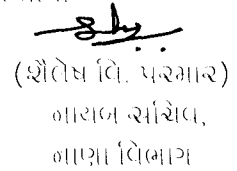 (શૈલેષ વિ. પરમાર)
નાયબ સચિવ,
નાણા વિભાગ